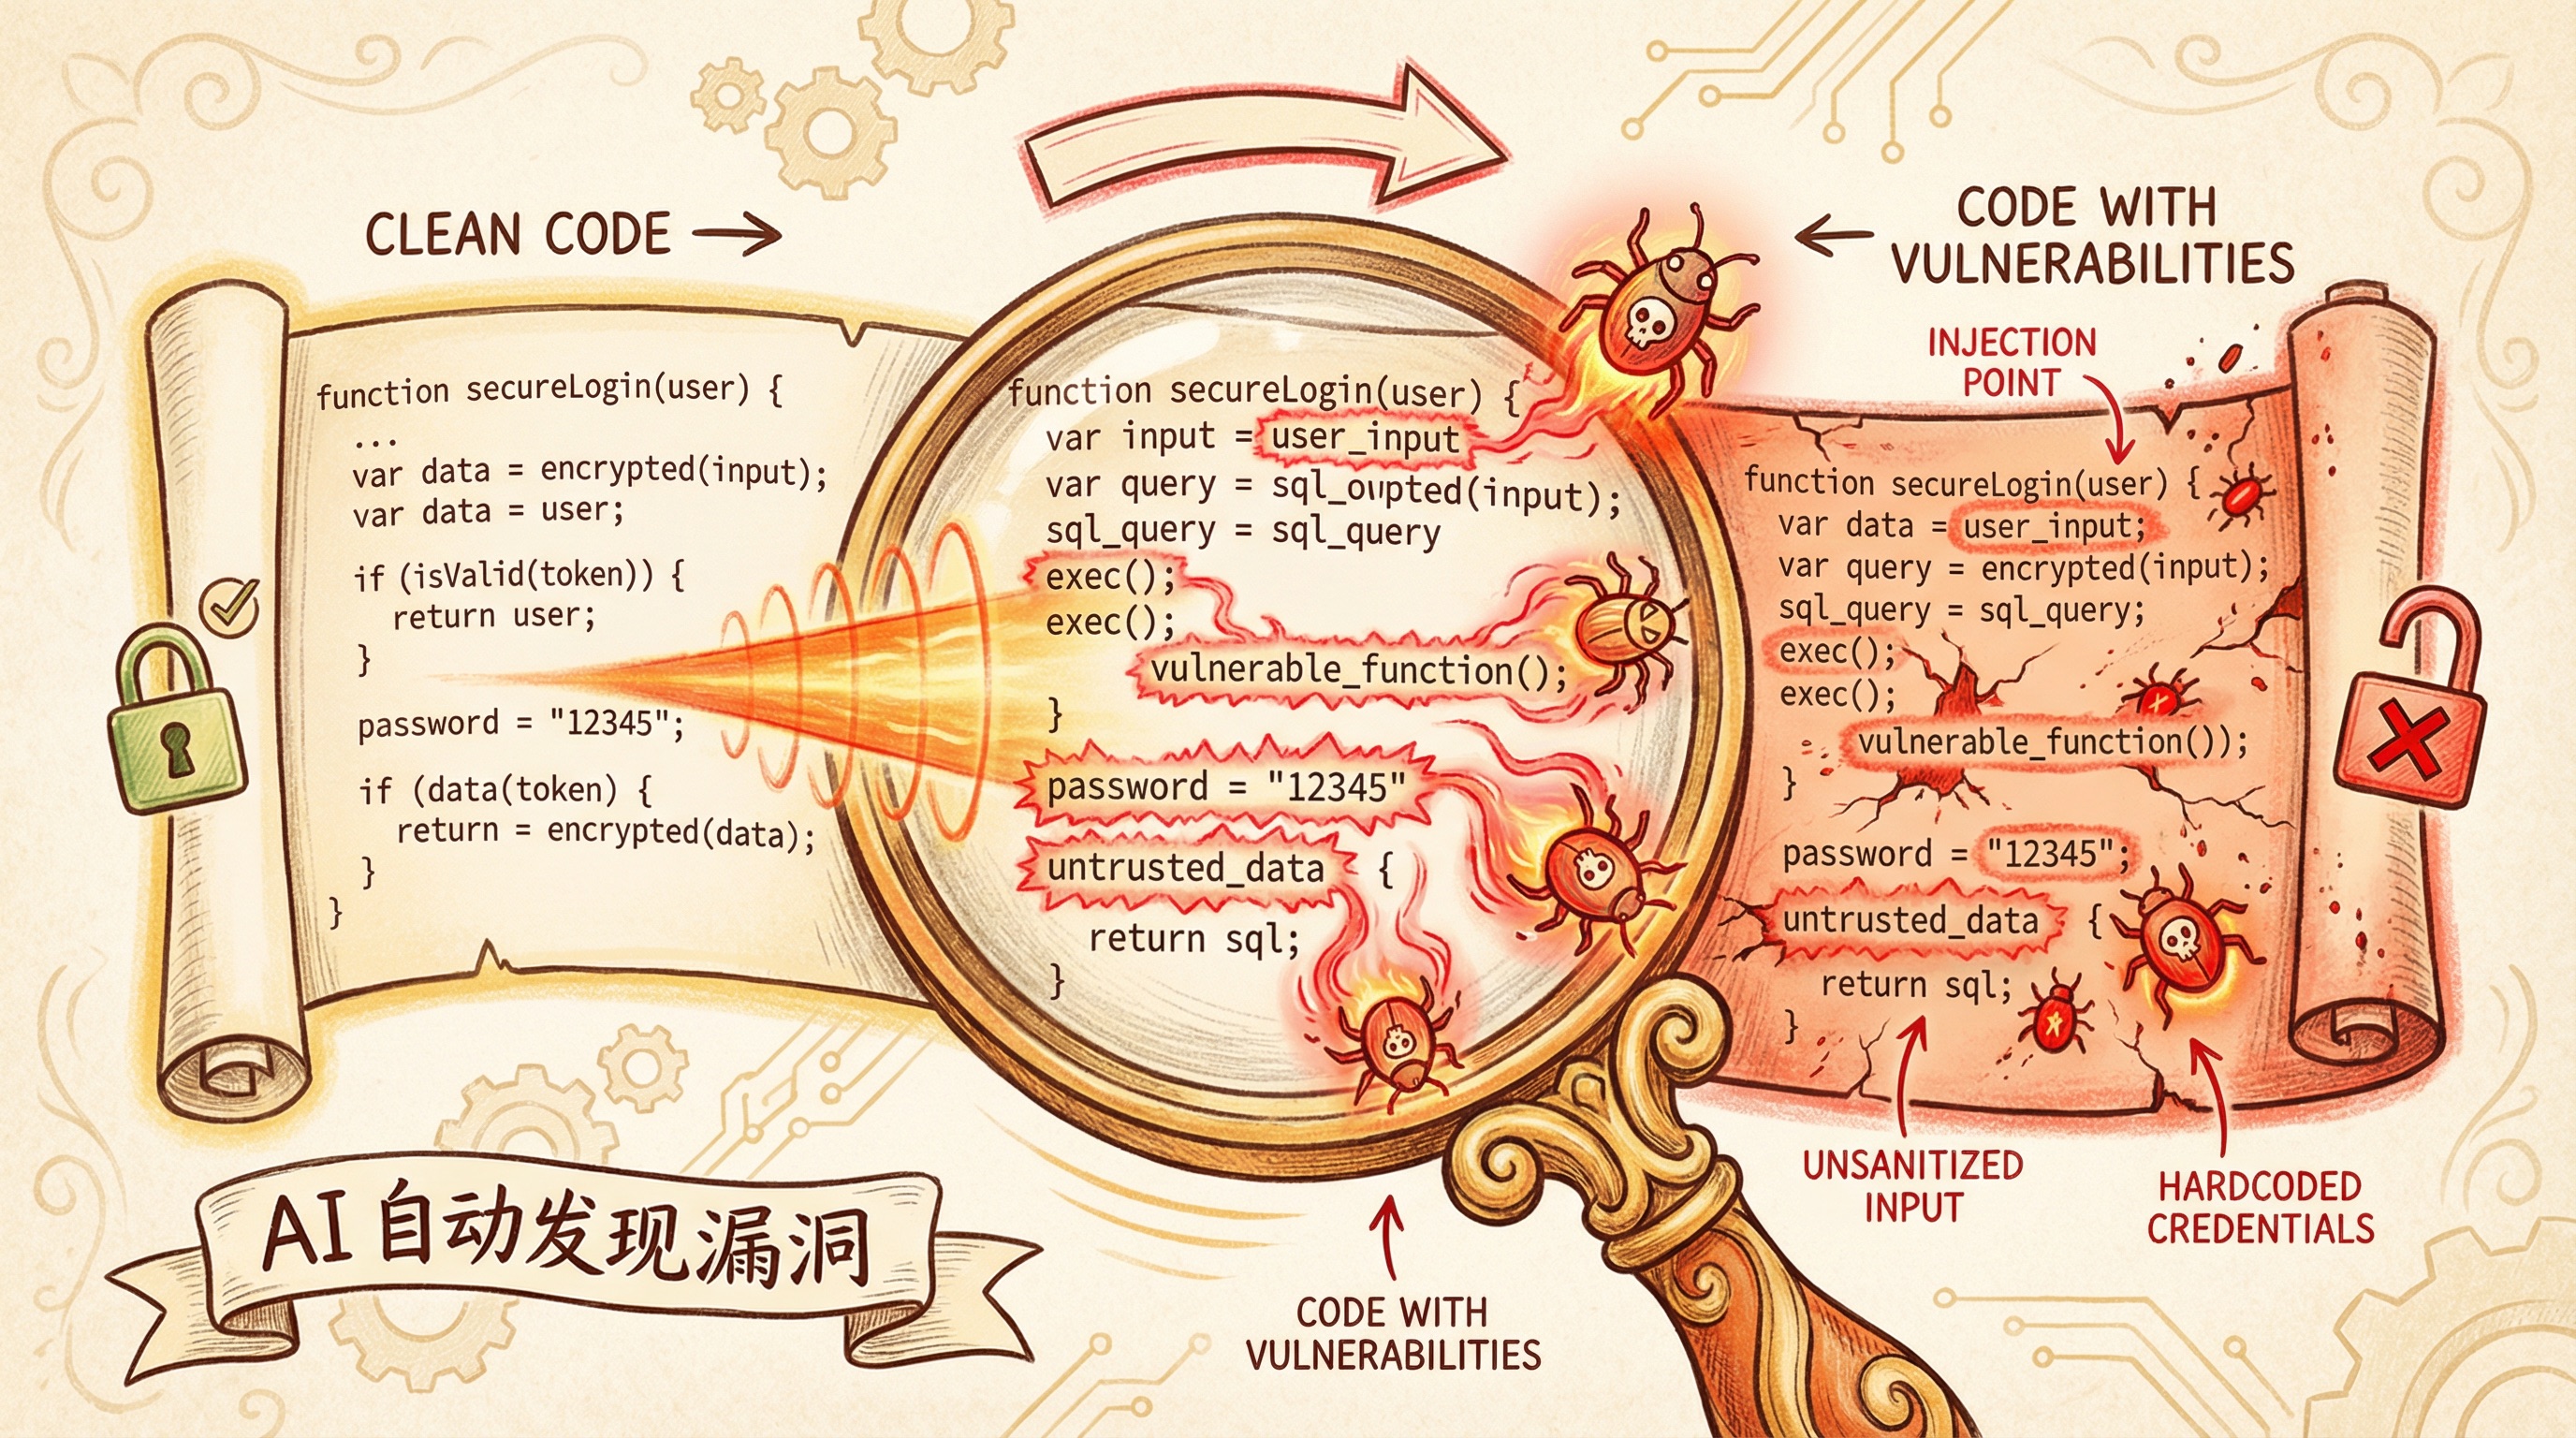 CLEAN CODE
function secureLogin(user) {
...
var data = encrypted(input);
var data = user;
if (isValid(token)) {
return user;
}
password = "12345";
if (data(token) {
return = encrypted(data);
}
}
function secureLogin(user) {
var input = user_input
var query = sql_oupted(input);
sql_query = sql_query
exec();
exec();
vulnerable_function();
}
password = "12345"
untrusted_data {
return sql;
}
CODE WITH
VULNERABILITIES
CODE WITH
VULNERABILITIES
INJECTION
POINT
function secureLogin(user) {
var data = user_input;
var query = encrypted(input);
sql_query = sql_query;
exec();
exec();
vulnerable_function());
}
password = "12345";
untrusted_data {
return sql;
}
UNSANITIZED
INPUT
HARDCODED
CREDENTIALS
AI 自动发现漏洞